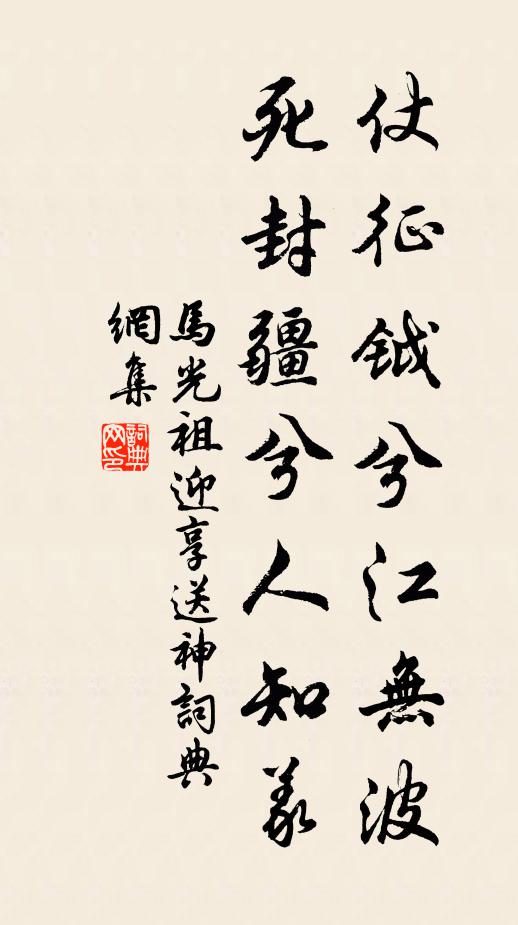 仗征鉞兮江無波
死封疆兮人知義
馬光祖迎享送神詞典
網集
詞典网印